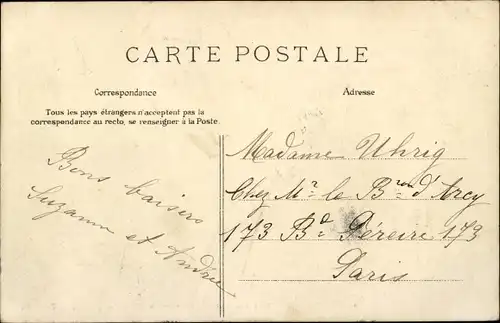 CARTE POSTALE
Correspondance
Adresse
Tous les pays étrangers n'acceptent pas la
correspondance au recto, se renseigner à la Poste.
Bons baisers
Suzanne et Andrée
Madame Uhrig
Chez Mr le Bron d'Arcy
173 Bd Péreire 173
Paris